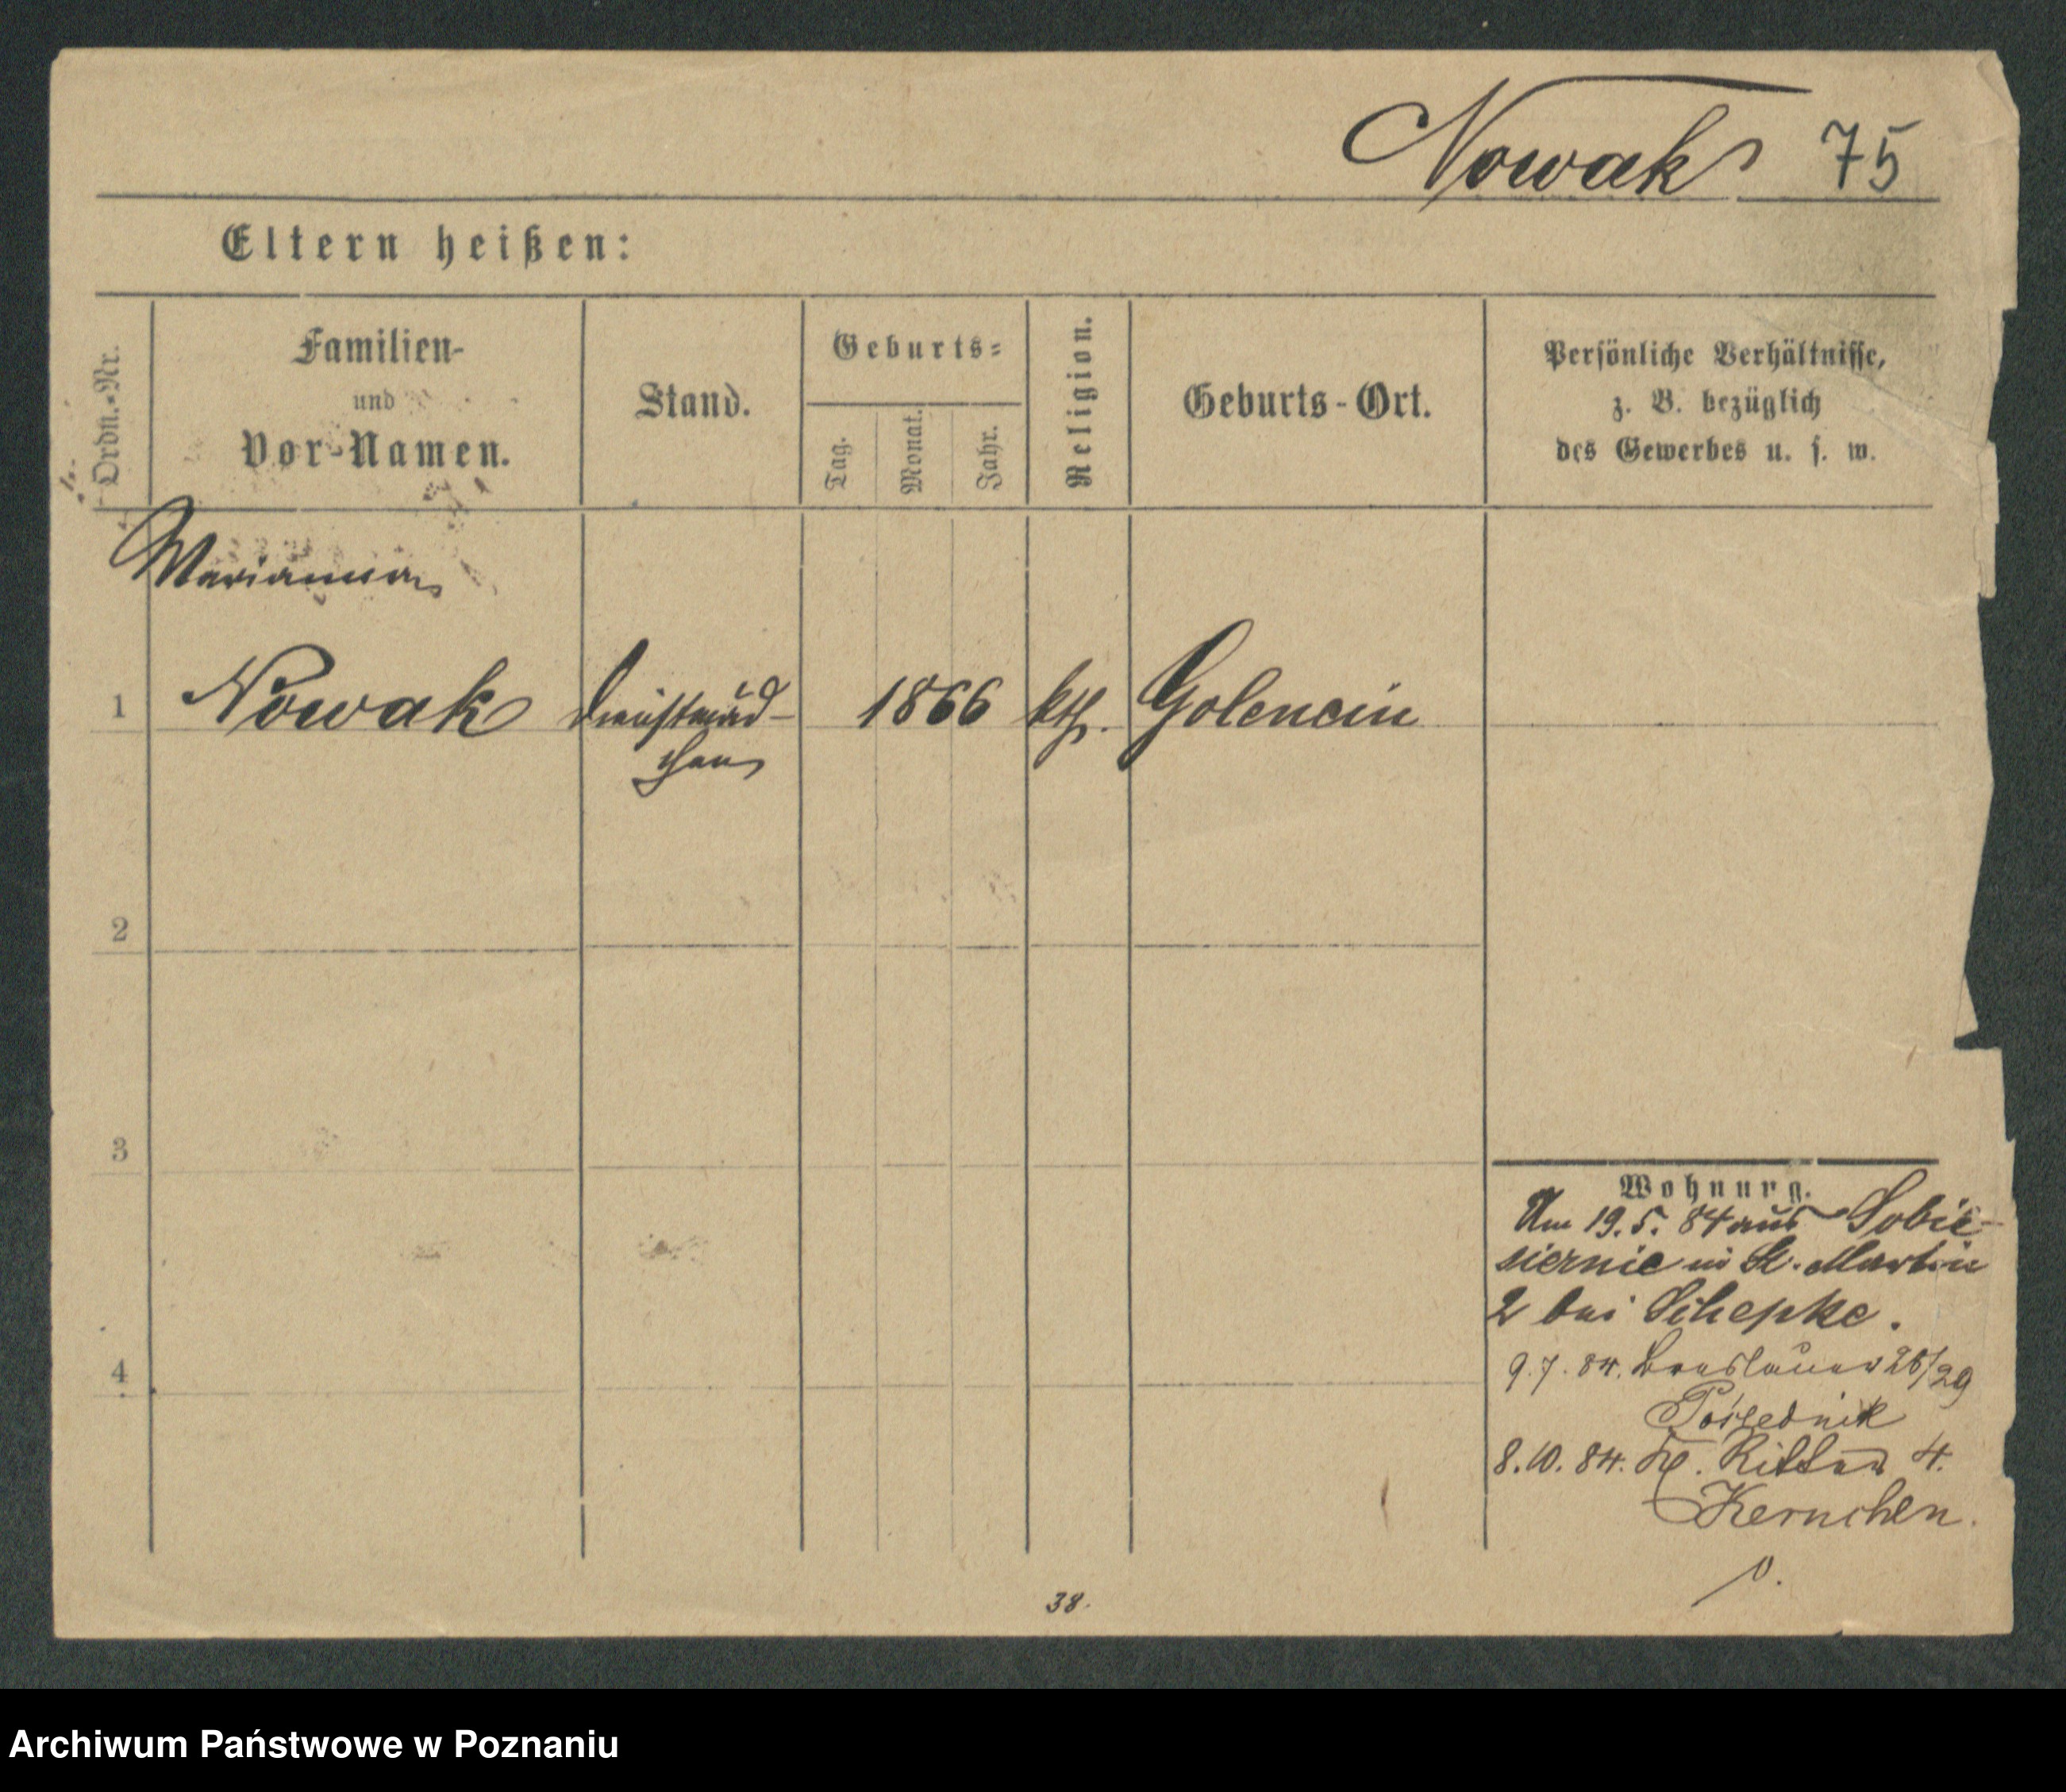 Nowak 75
Eltern heißen:
Ordn.-Nr.
Familien-
und
Vor-Namen.
Stand.
Geburts-
Tag.
Monat.
Jahr.
Religion.
Geburts-Ort.
Persönliche Verhältnisse,
z. B. bezüglich
des Gewerbes u. s. w.
Marianna
1 Nowak Dienstmäd- 1866 kth. Golencin
chen
2
3
4
Wohnung.
Am 19.5.84 aus Sobie-
siernie in St. Martin
2 bei Schepke.
9.7.84. Breslauer 28/29
8.10.84. Kl. Ritter 4.
Kernchen.
38.
Archiwum Państwowe w Poznaniu